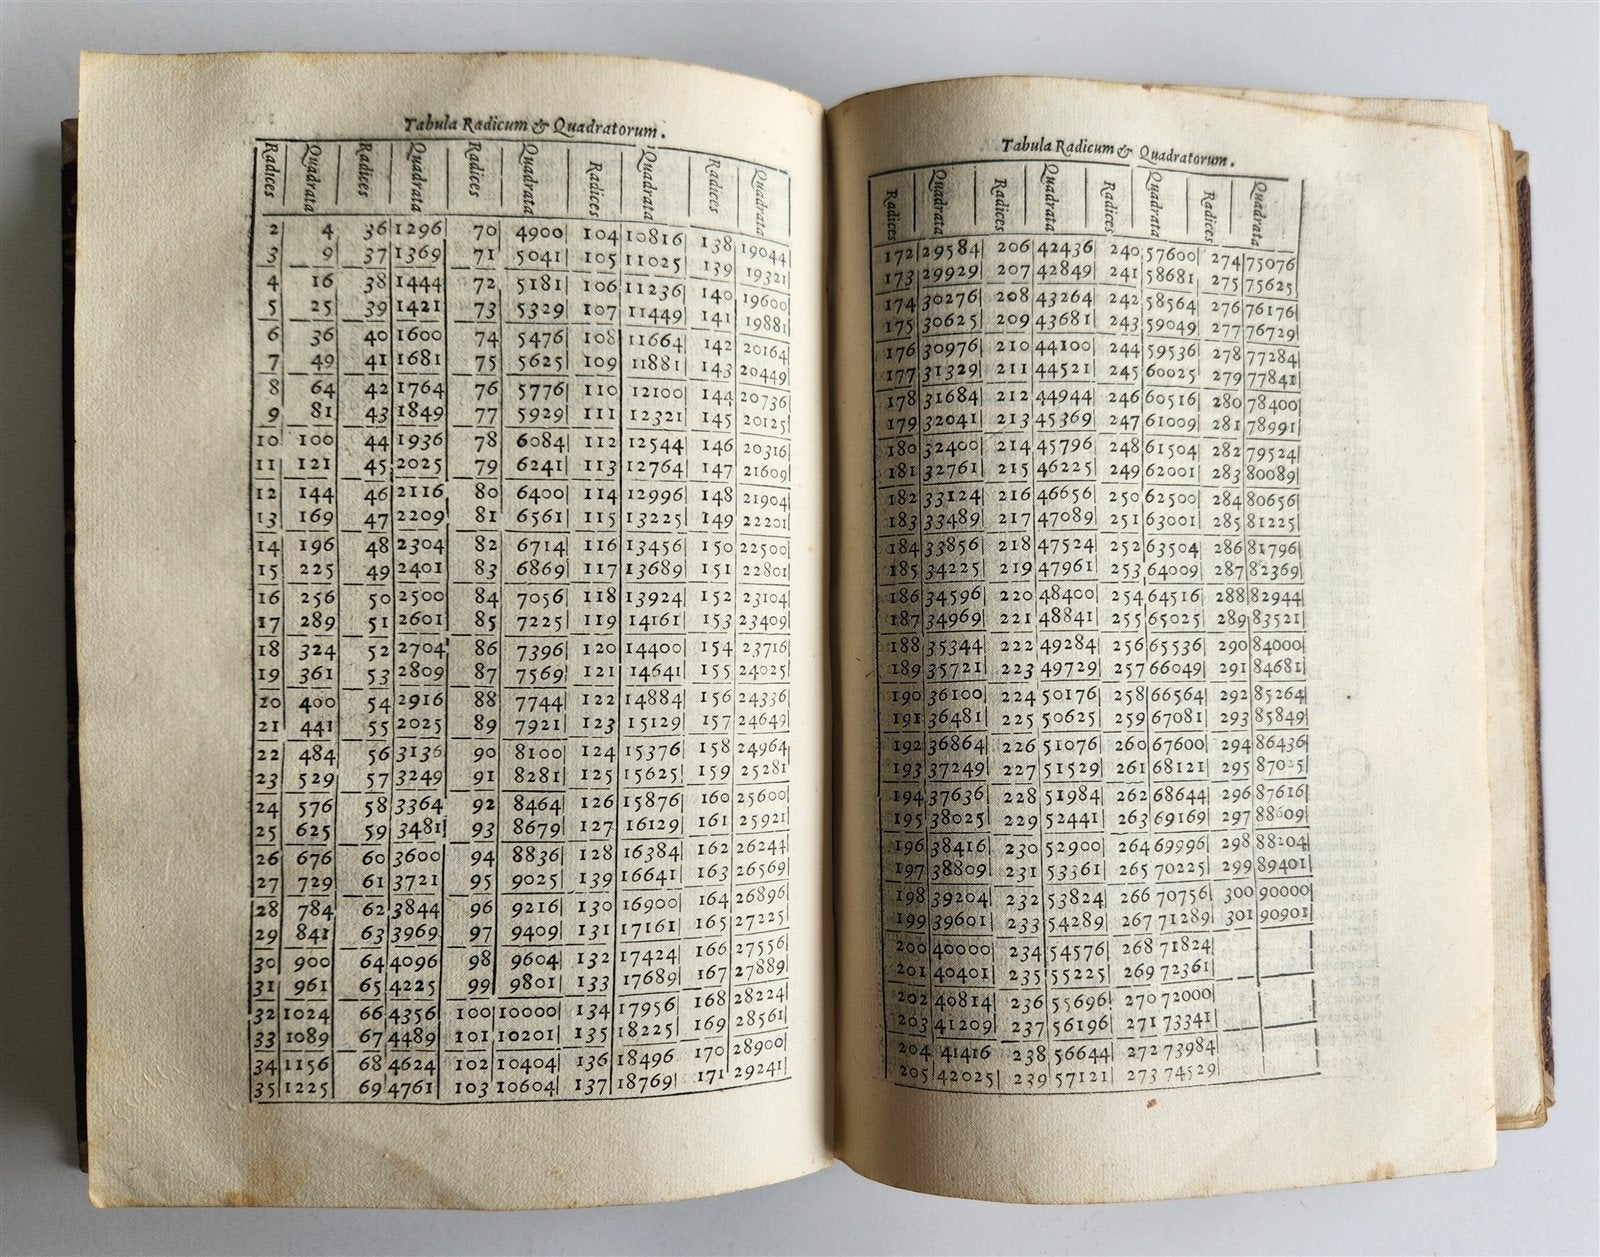 Tabula Radicum & Quadratorum.
Radices Quadrata Radices Quadrata Radices Quadrata Radices Quadrata Radices Quadrata
2 4 36 1296 70 4900 104 10816 138 19044
3 9 37 1369 71 5041 105 11025 139 19321
4 16 38 1444 72 5181 106 11236 140 19600
5 25 39 1421 73 5329 107 11449 141 19881
6 36 40 1600 74 5476 108 11664 142 20164
7 49 41 1681 75 5625 109 11881 143 20449
8 64 42 1764 76 5776 110 12100 144 20736
9 81 43 1849 77 5929 111 12321 145 20125
10 100 44 1936 78 6084 112 12544 146 20316
11 121 45 2025 79 6241 113 12764 147 21609
12 144 46 2116 80 6400 114 12996 148 21904
13 169 47 2209 81 6561 115 13225 149 22201
14 196 48 2304 82 6714 116 13456 150 22500
15 225 49 2401 83 6869 117 13689 151 22801
16 256 50 2500 84 7056 118 13924 152 23104
17 289 51 2601 85 7225 119 14161 153 23409
18 324 52 2704 86 7396 120 14400 154 23716
19 361 53 2809 87 7569 121 14641 155 24025
20 400 54 2916 88 7744 122 14884 156 24336
21 441 55 2025 89 7921 123 15129 157 24649
22 484 56 3136 90 8100 124 15376 158 24964
23 529 57 3249 91 8281 125 15625 159 25281
24 576 58 3364 92 8464 126 15876 160 25600
25 625 59 3481 93 8679 127 16129 161 25921
26 676 60 3600 94 8836 128 16384 162 26244
27 729 61 3721 95 9025 139 16641 163 26569
28 784 62 3844 96 9216 130 16900 164 26896
29 841 63 3969 97 9409 131 17161 165 27225
30 900 64 4096 98 9604 132 17424 166 27556
31 961 65 4225 99 9801 133 17689 167 27889
32 1024 66 4356 100 10000 134 17956 168 28224
33 1089 67 4489 101 10201 135 18225 169 28561
34 1156 68 4624 102 10404 136 18496 170 28900
35 1225 69 4761 103 10604 137 18769 171 29241
Tabula Radicum & Quadratorum.
Radices Quadrata Radices Quadrata Radices Quadrata Radices Quadrata
172 29584 206 42436 240 57600 274 75076
173 29929 207 42849 241 58681 275 75625
174 30276 208 43264 242 58564 276 76176
175 30625 209 43681 243 59049 277 76729
176 30976 210 44100 244 59536 278 77284
177 31329 211 44521 245 60025 279 77841
178 31684 212 44944 246 60516 280 78400
179 32041 213 45369 247 61009 281 78991
180 32400 214 45796 248 61504 282 79524
181 32761 215 46225 249 62001 283 80089
182 33124 216 46656 250 62500 284 80656
183 33489 217 47089 251 63001 285 81225
184 33856 218 47524 252 63504 286 81796
185 34225 219 47961 253 64009 287 82369
186 34596 220 48400 254 64516 288 82944
187 34969 221 48841 255 65025 289 83521
188 35344 222 49284 256 65536 290 84000
189 35721 223 49729 257 66049 291 84681
190 36100 224 50176 258 66564 292 85264
191 36481 225 50625 259 67081 293 85849
192 36864 226 51076 260 67600 294 86436
193 37249 227 51529 261 68121 295 87025
194 37636 228 51984 262 68644 296 87616
195 38025 229 52441 263 69169 297 88609
196 38416 230 52900 264 69996 298 88204
197 38809 231 53361 265 70225 299 89401
198 39204 232 53824 266 70756 300 90000
199 39601 233 54289 267 71289 301 90901
200 40000 234 54576 268 71824
201 40401 235 55225 269 72361
202 40814 236 55696 270 72000
203 41209 237 56196 271 73341
204 41416 238 56644 272 73984
205 42025 239 57121 273 74529